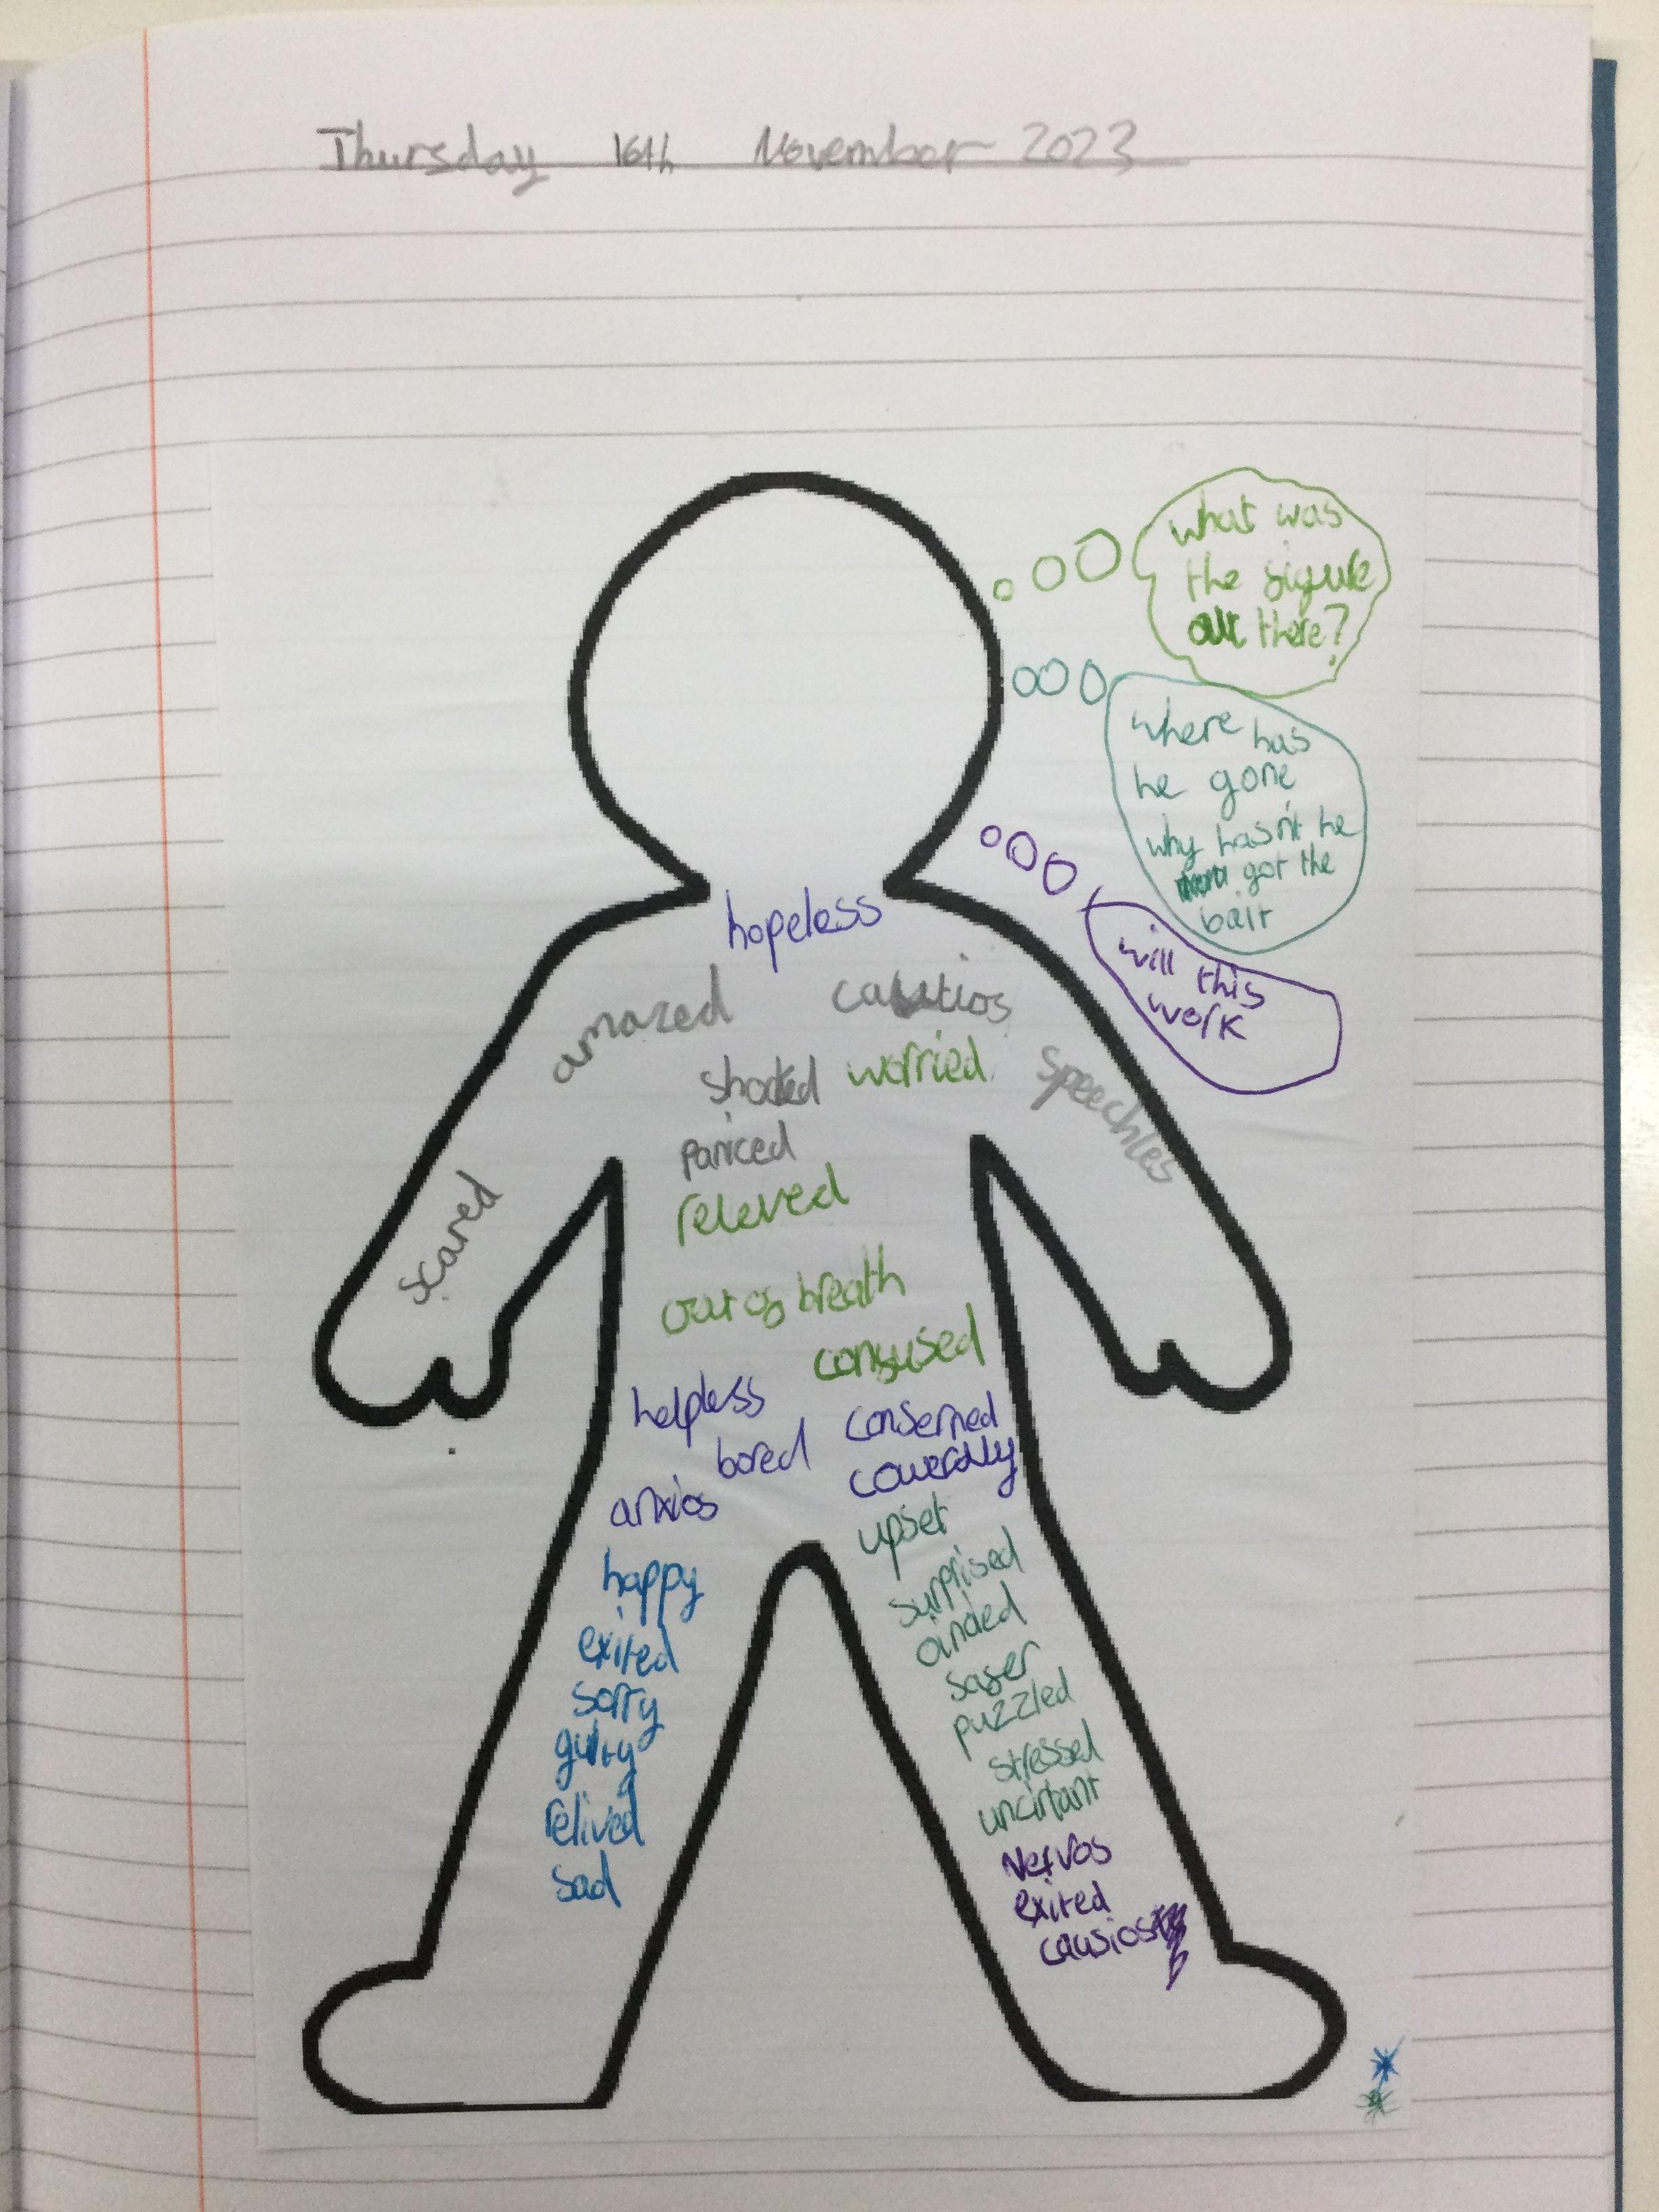 Thursday 16th November 2023
what was
the figure
out there?
where has
he gone
why hasn't he
got the
bait
will this
work
hopeless
amazed
cautios
shocked
worried
speechles
paniced
scared
releved
out of breath
confused
helpless
conserned
bored
cowerdly
anxios
upset
happy
surprised
exited
safer
sorry
puzzled
guilty
stressed
relived
uncirtant
sad
Nervos
exited
causios